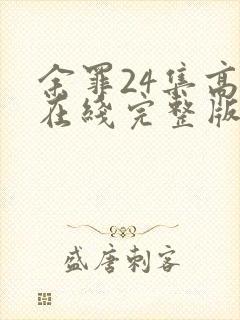 余罪24集高
在线完整版
盛唐刺客